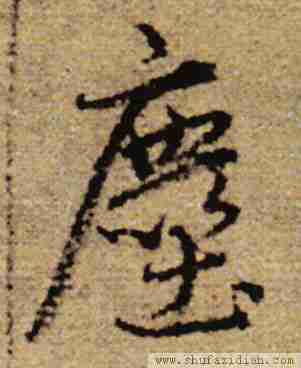 塵
www.shufazidian.com